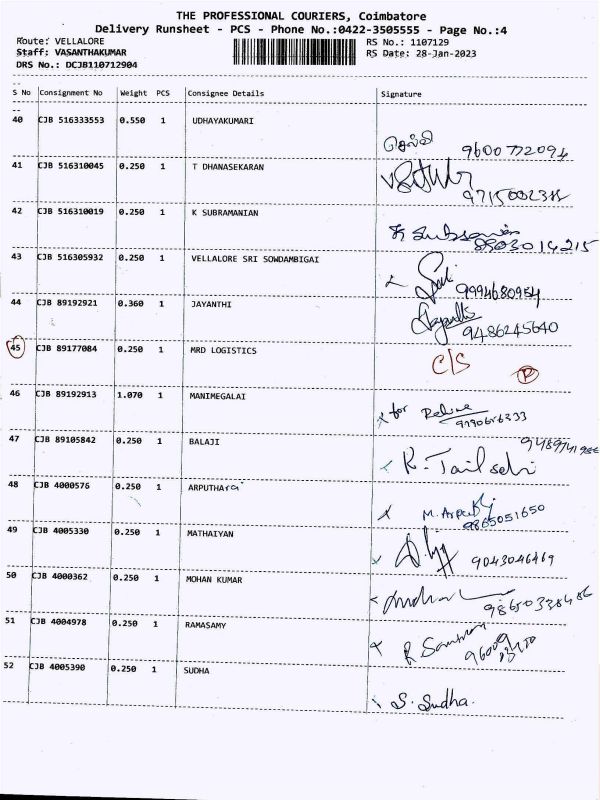 THE PROFESSIONAL COURIERS, Coimbatore
Delivery Runsheet - PCS - Phone No.:0422-3505555 - Page No.:4
Route: VELLALORE
Staff: VASANTHAKUMAR
DRS No.: DCJB110712904
RS No.: 1107129
RS Date: 28-Jan-2023
S No Consignment No Weight PCS Consignee Details Signature
40 CJB 516333553 0.550 1 UDHAYAKUMARI
செல்வி 9600772094
41 CJB 516310045 0.250 1 T DHANASEKARAN
42 CJB 516310019 0.250 1 K SUBRAMANIAN
8903014215
43 CJB 516305932 0.250 1 VELLALORE SRI SOWDAMBIGAI
9994680954
44 CJB 89192921 0.360 1 JAYANTHI
9486245640
45 CJB 89177084 0.250 1 MRD LOGISTICS
C/S P
46 CJB 89192913 1.070 1 MANIMEGALAI
for
47 CJB 89105842 0.250 1 BALAJI
48 CJB 4000576 0.250 1 ARPUTHAraj
9865051650
49 CJB 4005330 0.250 1 MATHAIYAN
9043046469
50 CJB 4000362 0.250 1 MOHAN KUMAR
51 CJB 4004978 0.250 1 RAMASAMY
52 CJB 4005390 0.250 1 SUDHA
S. Sudha.